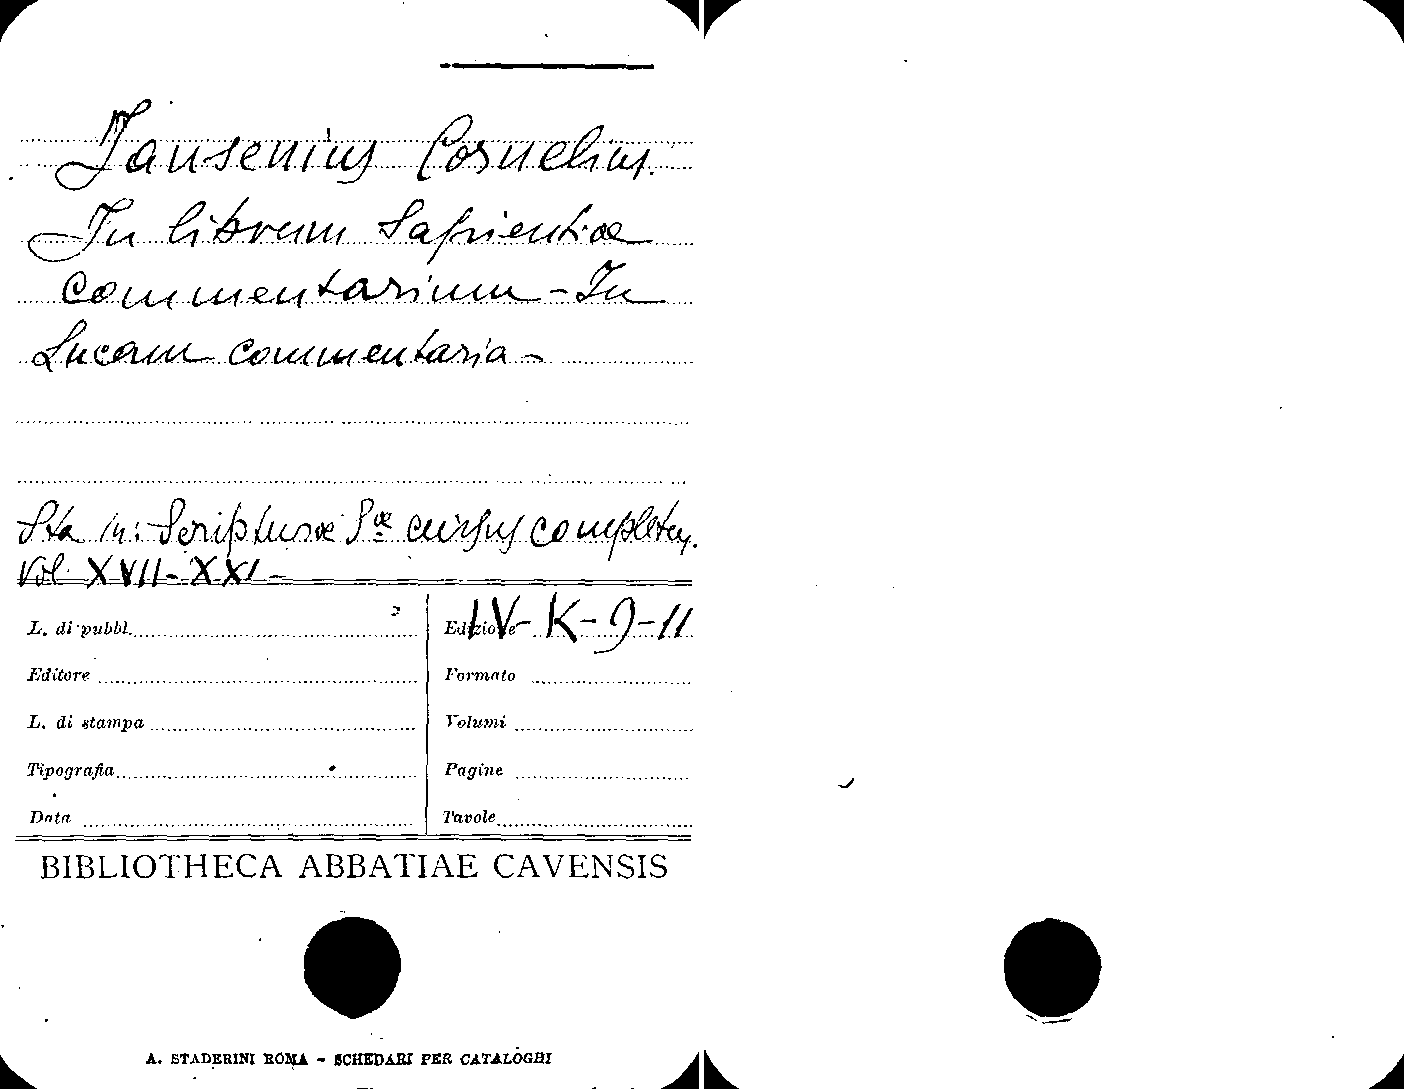 Jansenius Cornelius.
In librum Sapientiae
commentarium - In
Lucam commentaria -
Sta in: Scripturae Sae cursus completus.
Vol. XVII - XXI -
IV - K - 9 - 11
L. di pubbl. Edizione
Editore Formato
L. di stampa Volumi
Tipografia Pagine
Data Tavole
BIBLIOTHECA ABBATIAE CAVENSIS
A. STADERINI ROMA - SCHEDARI PER CATALOGHI